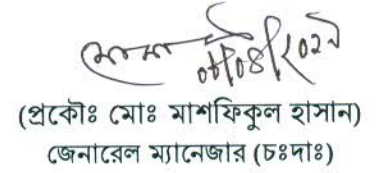 ০৮/০৪/২০২৭
(প্রকৌঃ মোঃ মাশফিকুল হাসান)
জেনারেল ম্যানেজার (চঃদাঃ)